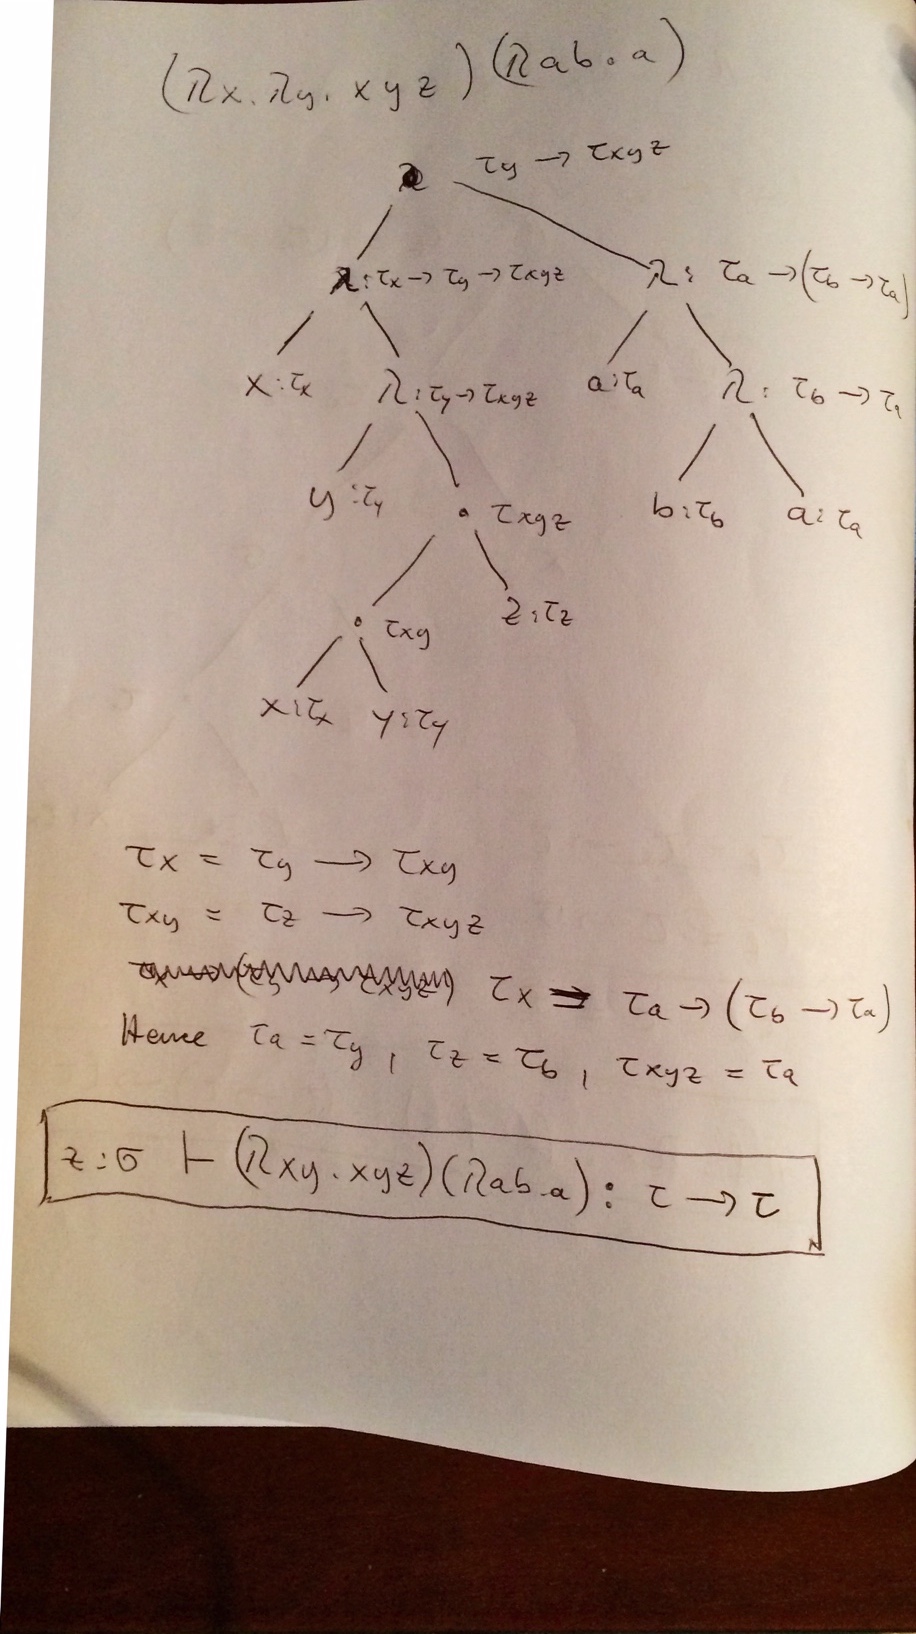 (λx. λy. xyz)(λab.a)
τy → τxyz
λ: τx → τy → τxyz λ: τa → (τb → τa)
x:τx λ:τy → τxyz a:τa λ: τb → τa
y:τy • τxyz b:τb a:τa
• τxy z:τz
x:τx y:τy
τx = τy → τxy
τxy = τz → τxyz
τx = τa → (τb → τa)
Hence τa = τy, τz = τb, τxyz = τa
z:σ ⊢ (λxy.xyz)(λab.a): τ → τ